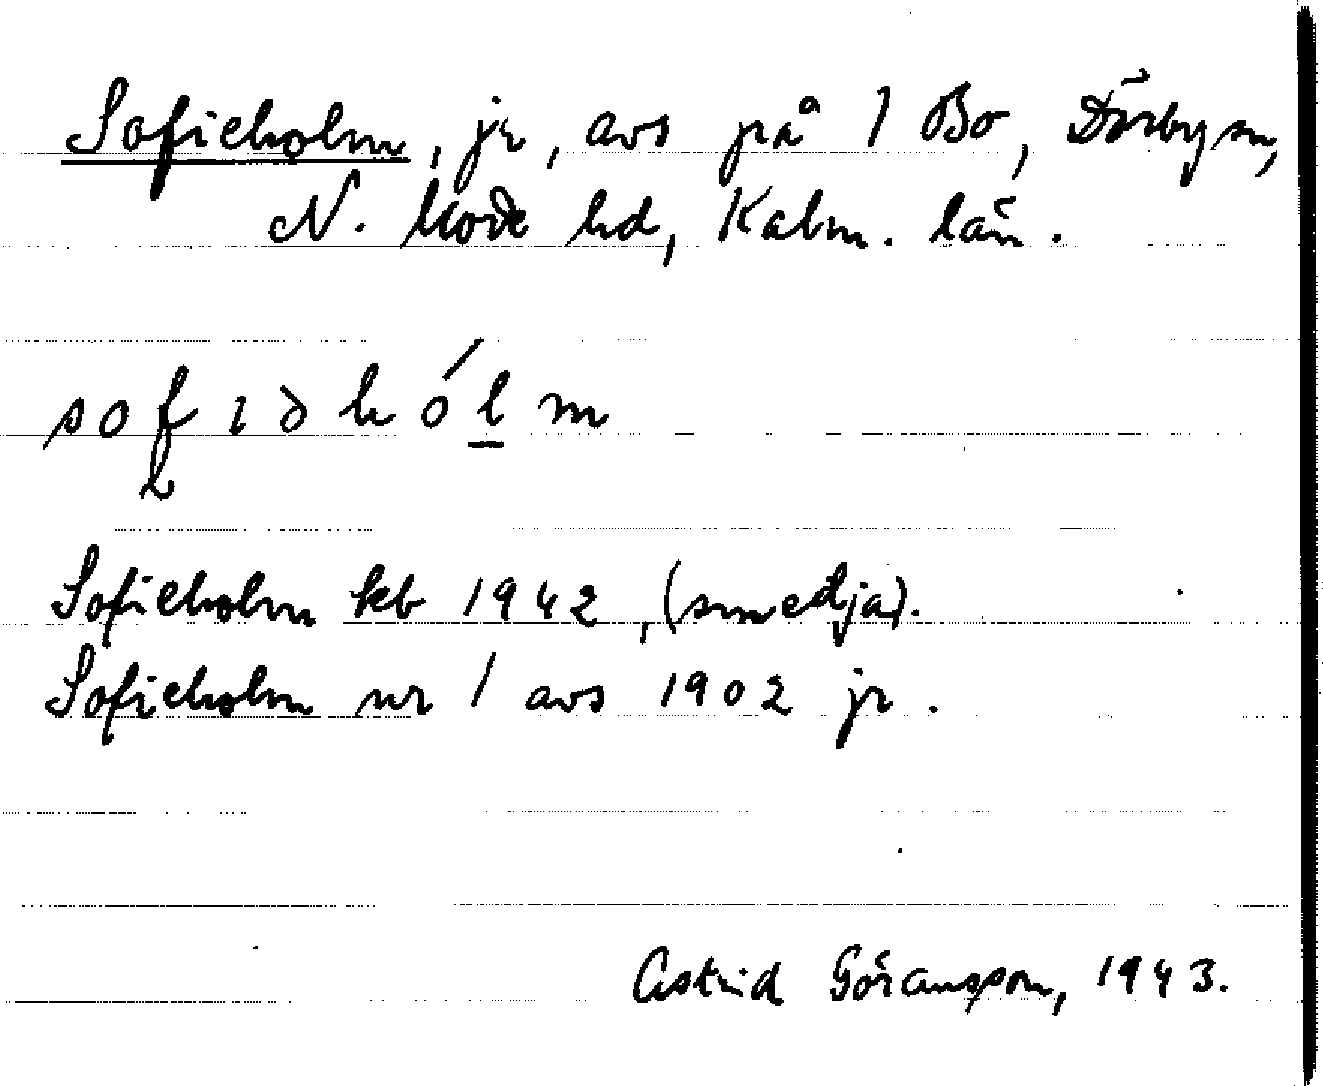 Sofieholm, jr, avs på 1 Bo, Dörby sn,
N. Möre hd, Kalm. län.
sofıəhólm
Sofieholm kb 1942, (smedja).
Sofieholm nr 1 avs 1902 jr.
Astrid Göransson, 1943.